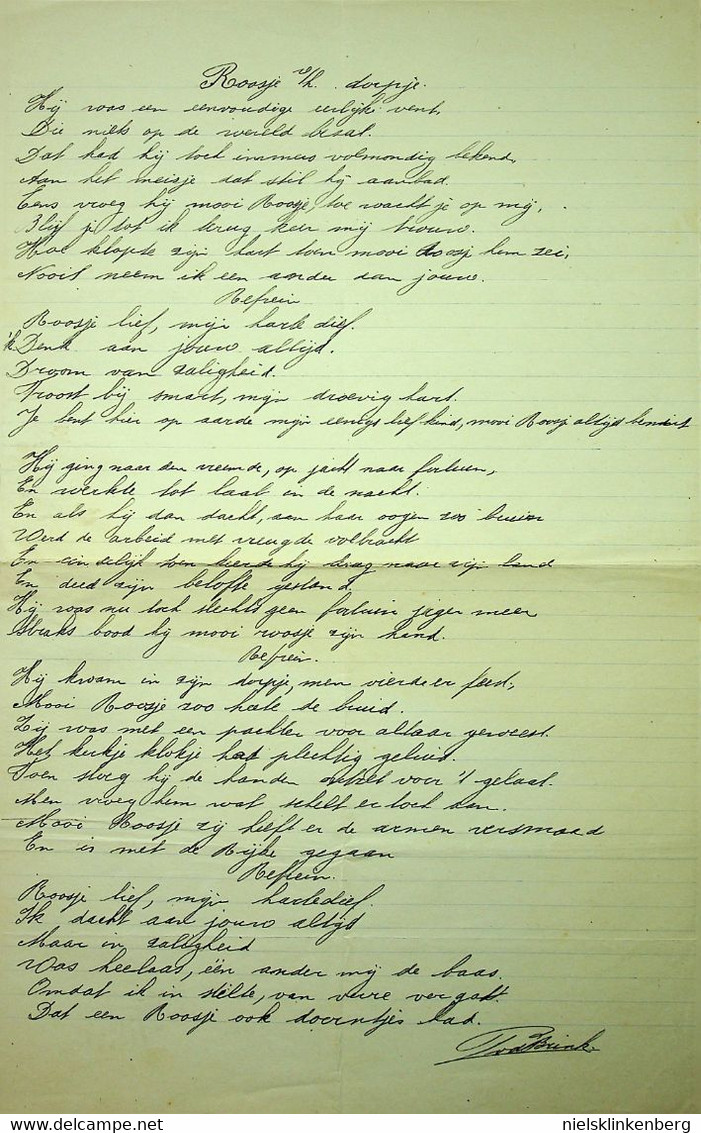 Roosje v/h. dorpje.
Hij was een eenvoudige eerlijke vent,
Die niets op de wereld bezat.
Dat had hij toch immers volmondig bekend,
Aan het meisje dat stil hij aanbad.
Eens vroeg hij mooi Roosje, toe wacht je op mij,
Blijf je tot ik terug keer mij trouw.
Hoe klopte zijn hart toen mooi Roosje hem zei,
Nooit neem ik een ander dan jouw.
Refrein
Roosje lief, mijn harte dief.
'k Denk aan jouw altijd.
Droom van zaligheid.
Troost bij smart, mijn droevig hart.
Je bent hier op aarde mijn eenigst lief kind, mooi Roosje altijd bemint
Hij ging naar den vreemde, op jacht naar fortuin,
En werkte tot laat in de nacht.
En als hij dan dacht, aan haar oogen zoo bruin
Werd de arbeid met vreugde volbracht
En eindelijk toen keerde hij terug naar zijn land
En deed zijn belofte gestand
Hij was nu toch slechts geen fortuin jager meer
Straks bood hij mooi roosje zijn hand.
Refrein.
Hij kwam in zijn dorpje, men vierde er feest,
Mooi Roosje zoo heete de bruid.
Zij was met een pachter voor altaar geweest.
Het kerkje klokje had plechtig geluid.
Toen sloeg hij de handen ontzet voor 't gelaat.
Men vroeg hem wat schelt er toch aan.
Mooi Roosje zij heeft er de armen versmaad
En is met de Rijke gegaan
Refrein.
Roosje lief, mijn hartedief.
Ik dacht aan jouw altijd
Maar in zaligheid
Was heelaas, één ander mij de baas.
Omdat ik in stilte, van verre vergat.
Dat een Roosje ook doorntjes had.
delcampe.net
nielsklinkenberg